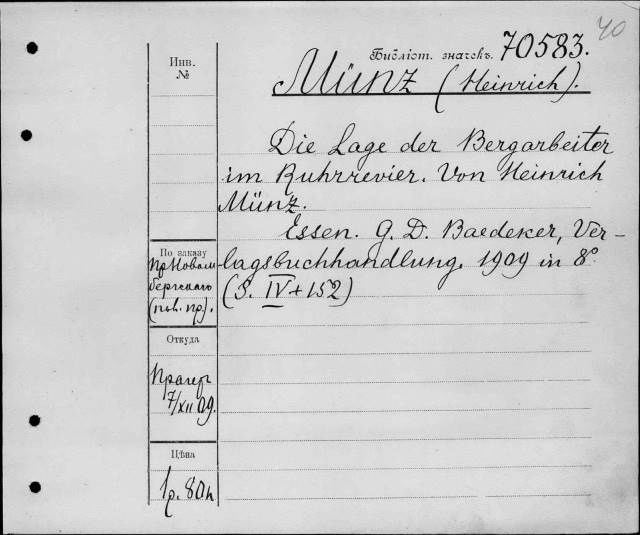 40
Библіот. значекъ. 70583.
Инв.
№
Münz (Heinrich).
Die Lage der Bergarbeiter
im Ruhrrevier. Von Heinrich
Münz.
Essen. G. D. Baedeker, Ver-
lagsbuchhandlung. 1909 in 8°
(S. IV + 152)
По заказу
пр. Новом
бергскаго
Откуда
Прагеръ
7/XII 09.
Цѣна
1р. 80к